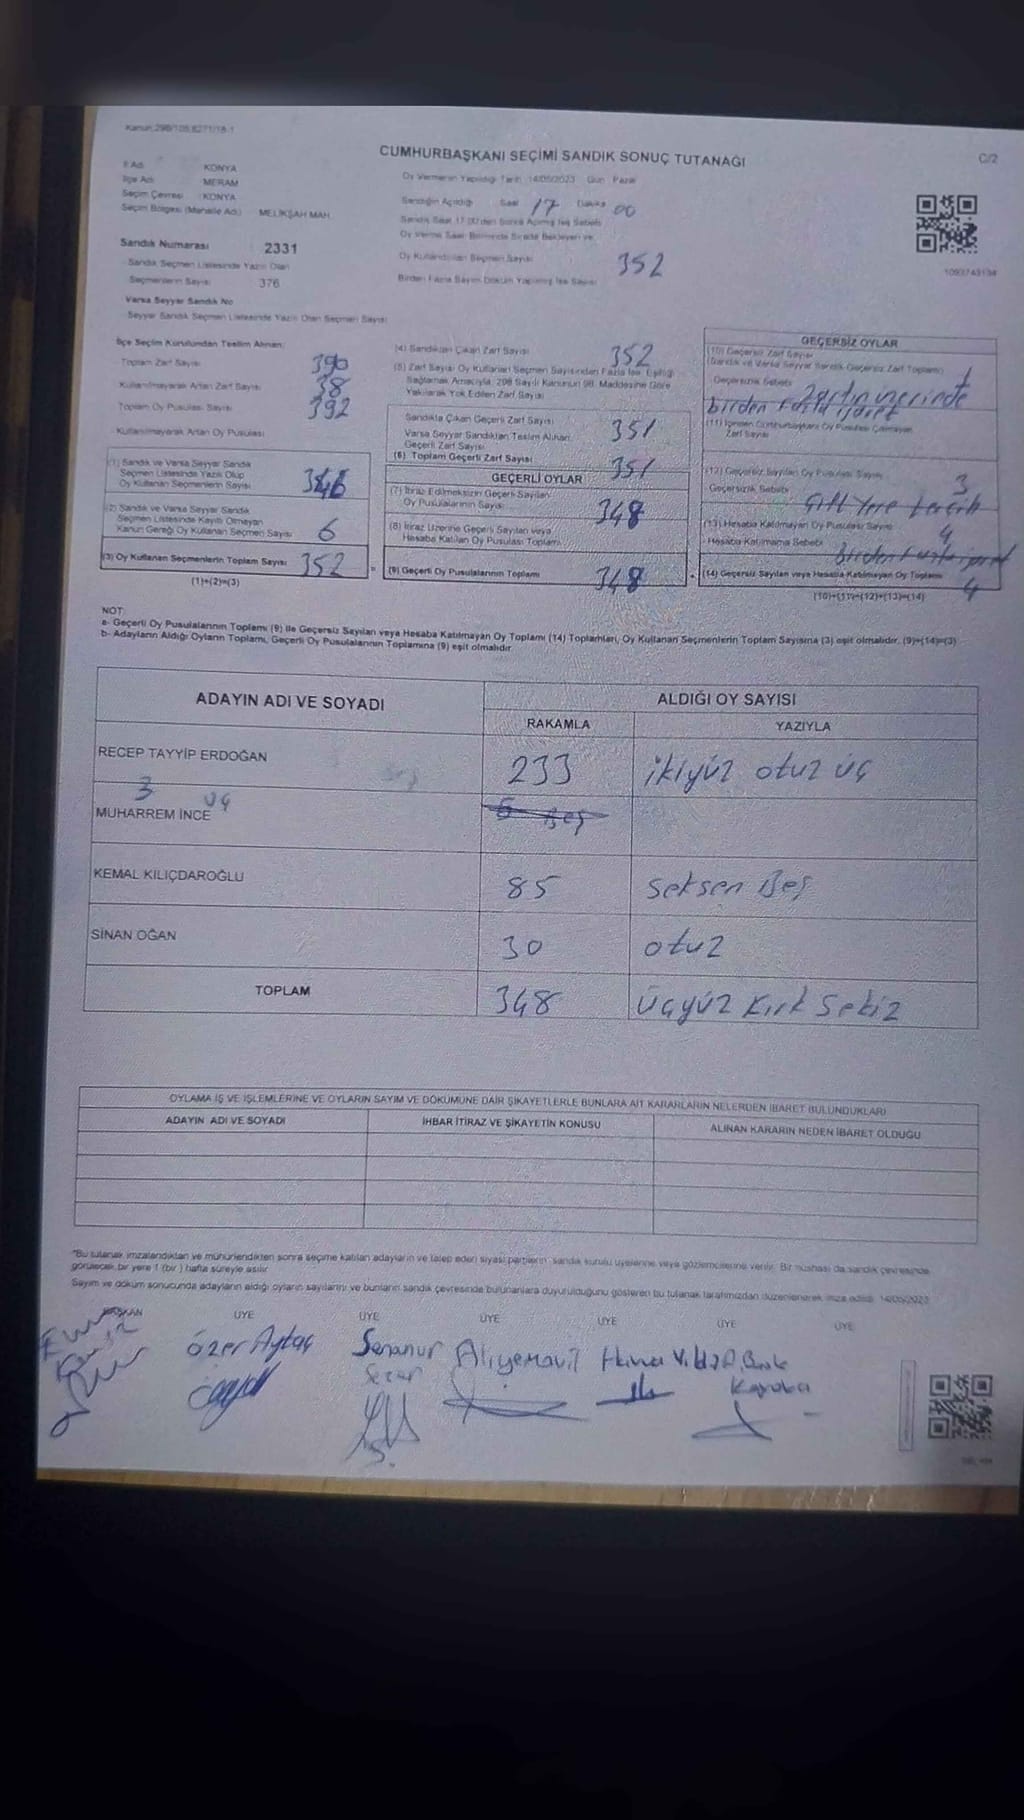 Kanun:298/105,6271/18-1
CUMHURBAŞKANI SEÇİMİ SANDIK SONUÇ TUTANAĞI
C/2
İl Adı KONYA
İlçe Adı MERAM
Seçim Çevresi KONYA
Seçim Bölgesi (Mahalle Adı) MELİKŞAH MAH.
Sandık Numarası 2331
Sandık Seçmen Listesinde Yazılı Olan
Seçmenlerin Sayısı 376
Varsa Seyyar Sandık No
Seyyar Sandık Seçmen Listesinde Yazılı Olan Seçmen Sayısı
Oy Vermenin Yapıldığı Tarih 14/05/2023 Gün Pazar
Sandığın Açıldığı Saat 17 Dakika 00
Sandık Saat 17:00'den Sonra Açılmış İse Sebebi
Oy Verme Saati Bitiminde Sırada Bekleyen ve
Oy Kullandırılan Seçmen Sayısı 352
Birden Fazla Sayım Döküm Yapılmış İse Sayısı
1093743134
İlçe Seçim Kurulundan Teslim Alınan:
Toplam Zarf Sayısı 390
Kullanılmayarak Artan Zarf Sayısı 38
Toplam Oy Pusulası Sayısı 392
Kullanılmayarak Artan Oy Pusulası
(1) Sandık ve Varsa Seyyar Sandık
Seçmen Listesinde Yazılı Olup
Oy Kullanan Seçmenlerin Sayısı 346
(2) Sandık ve Varsa Seyyar Sandık
Seçmen Listesinde Kayıtlı Olmayan
Kanun Gereği Oy Kullanan Seçmen Sayısı 6
(3) Oy Kullanan Seçmenlerin Toplam Sayısı 352
(1)+(2)=(3)
(4) Sandıktan Çıkan Zarf Sayısı 352
(5) Zarf Sayısı Oy Kullanan Seçmen Sayısından Fazla İse, Eşitliği
Sağlamak Amacıyla, 298 Sayılı Kanunun 98. Maddesine Göre
Yakılarak Yok Edilen Zarf Sayısı
Sandıkta Çıkan Geçerli Zarf Sayısı 351
Varsa Seyyar Sandıktan Teslim Alınan
Geçerli Zarf Sayısı
(6) Toplam Geçerli Zarf Sayısı 351
GEÇERLİ OYLAR
(7) İtiraz Edilmeksizin Geçerli Sayılan
Oy Pusulalarının Sayısı 348
(8) İtiraz Üzerine Geçerli Sayılan veya
Hesaba Katılan Oy Pusulası Toplamı
(9) Geçerli Oy Pusulalarının Toplamı 348
GEÇERSİZ OYLAR
(10) Geçersiz Zarf Sayısı
(Sandık ve Varsa Seyyar Sandık Geçersiz Zarf Toplamı) 1
Geçersizlik Sebebi Zarfın üzerinde
birden fazla işaret
(11) İçinden Cumhurbaşkanı Oy Pusulası Çıkmayan
Zarf Sayısı
(12) Geçersiz Sayılan Oy Pusulası Sayısı 3
Geçersizlik Sebebi Çift Yere tercih
(13) Hesaba Katılmayan Oy Pusulası Sayısı 4
Hesaba Katılmama Sebebi birden fazla işaret
(14) Geçersiz Sayılan veya Hesaba Katılmayan Oy Toplamı 4
(10)+(11)+(12)+(13)=(14)
NOT:
a- Geçerli Oy Pusulalarının Toplamı (9) ile Geçersiz Sayılan veya Hesaba Katılmayan Oy Toplamı (14) Toplamları, Oy Kullanan Seçmenlerin Toplam Sayısına (3) eşit olmalıdır. (9)+(14)=(3)
b- Adayların Aldığı Oyların Toplamı, Geçerli Oy Pusulalarının Toplamına (9) eşit olmalıdır.
ADAYIN ADI VE SOYADI ALDIĞI OY SAYISI
RAKAMLA YAZIYLA
RECEP TAYYİP ERDOĞAN 233 ikiyüz otuz üç
3 üç
MUHARREM İNCE 5 Beş
KEMAL KILIÇDAROĞLU 85 Seksen Beş
SİNAN OĞAN 30 otuz
TOPLAM 348 Üçyüz Kırk Sekiz
OYLAMA İŞ VE İŞLEMLERİNE VE OYLARIN SAYIM VE DÖKÜMÜNE DAİR ŞİKAYETLERLE BUNLARA AİT KARARLARIN NELERDEN İBARET BULUNDUKLARI
ADAYIN ADI VE SOYADI İHBAR İTİRAZ VE ŞİKAYETİN KONUSU ALINAN KARARIN NEDEN İBARET OLDUĞU
*Bu tutanak imzalandıktan ve mühürlendikten sonra seçime katılan adayların ve talep eden siyasi partilerin sandık kurulu üyelerine veya gözlemcilerine verilir. Bir nüshası da sandık çevresinde
görülecek bir yere 1 (bir) hafta süreyle asılır.
Sayım ve döküm sonucunda adayların aldığı oyların sayılarını ve bunların sandık çevresinde bulunanlara duyurulduğunu gösteren bu tutanak tarafımızdan düzenlenerek imza edildi. 14/05/2023
BAŞKAN ÜYE ÜYE ÜYE ÜYE ÜYE ÜYE
Özer Aytaç Senanur